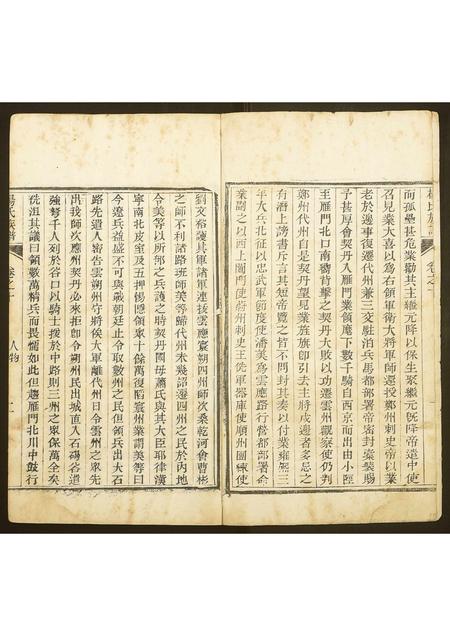 而孤壘甚危業勸其主繼元降以保生聚繼元既降帝遣中使
召見業大喜以為右領軍衛大將軍師還授鄭州刺史帝以業
老於邊事復遷代州兼三交駐泊兵馬都部署帝密封橐裝賜
予甚厚會契丹入雁門業領麾下數千騎自西京而出由小陘
至雁門北口南嚮背擊之契丹大敗以功遷雲州觀察使仍判
鄭州代州自是契丹望見業旌旗即引去主將戍邊者多忌之
有潛上謗書斥言其短帝覽之皆不問封其奏以付業雍熙三
年大兵北征以忠武軍節度使潘美為雲應路行營都部署命
業副之以西上閤門使蔚州刺史王侁軍器庫使順州團練使
劉文裕護其軍諸軍連拔雲應寰朔四州師次桑乾河會曹彬
之師不利諸路班師美等歸代州未幾詔遷四州之民於內地
令美等以所部之兵護之時契丹國母蕭氏與其大臣耶律漢
寧南北皮室及五押惕隱領眾十餘萬復陷寰州業謂美等曰
今遼兵益盛不可與戰朝廷止令取數州之民但領兵出大石
路先遣人密告雲朔州守將俟大軍離代州日令雲州之眾先
出我師次應州契丹必來拒即令朔州民出城直入石碣谷遣
強弩千人列於谷口以騎士援於中路則三州之眾保萬全矣
侁沮其議曰領數萬精兵而畏懦如此但趨雁門北川中鼓行
楊氏族譜
卷之一
人物